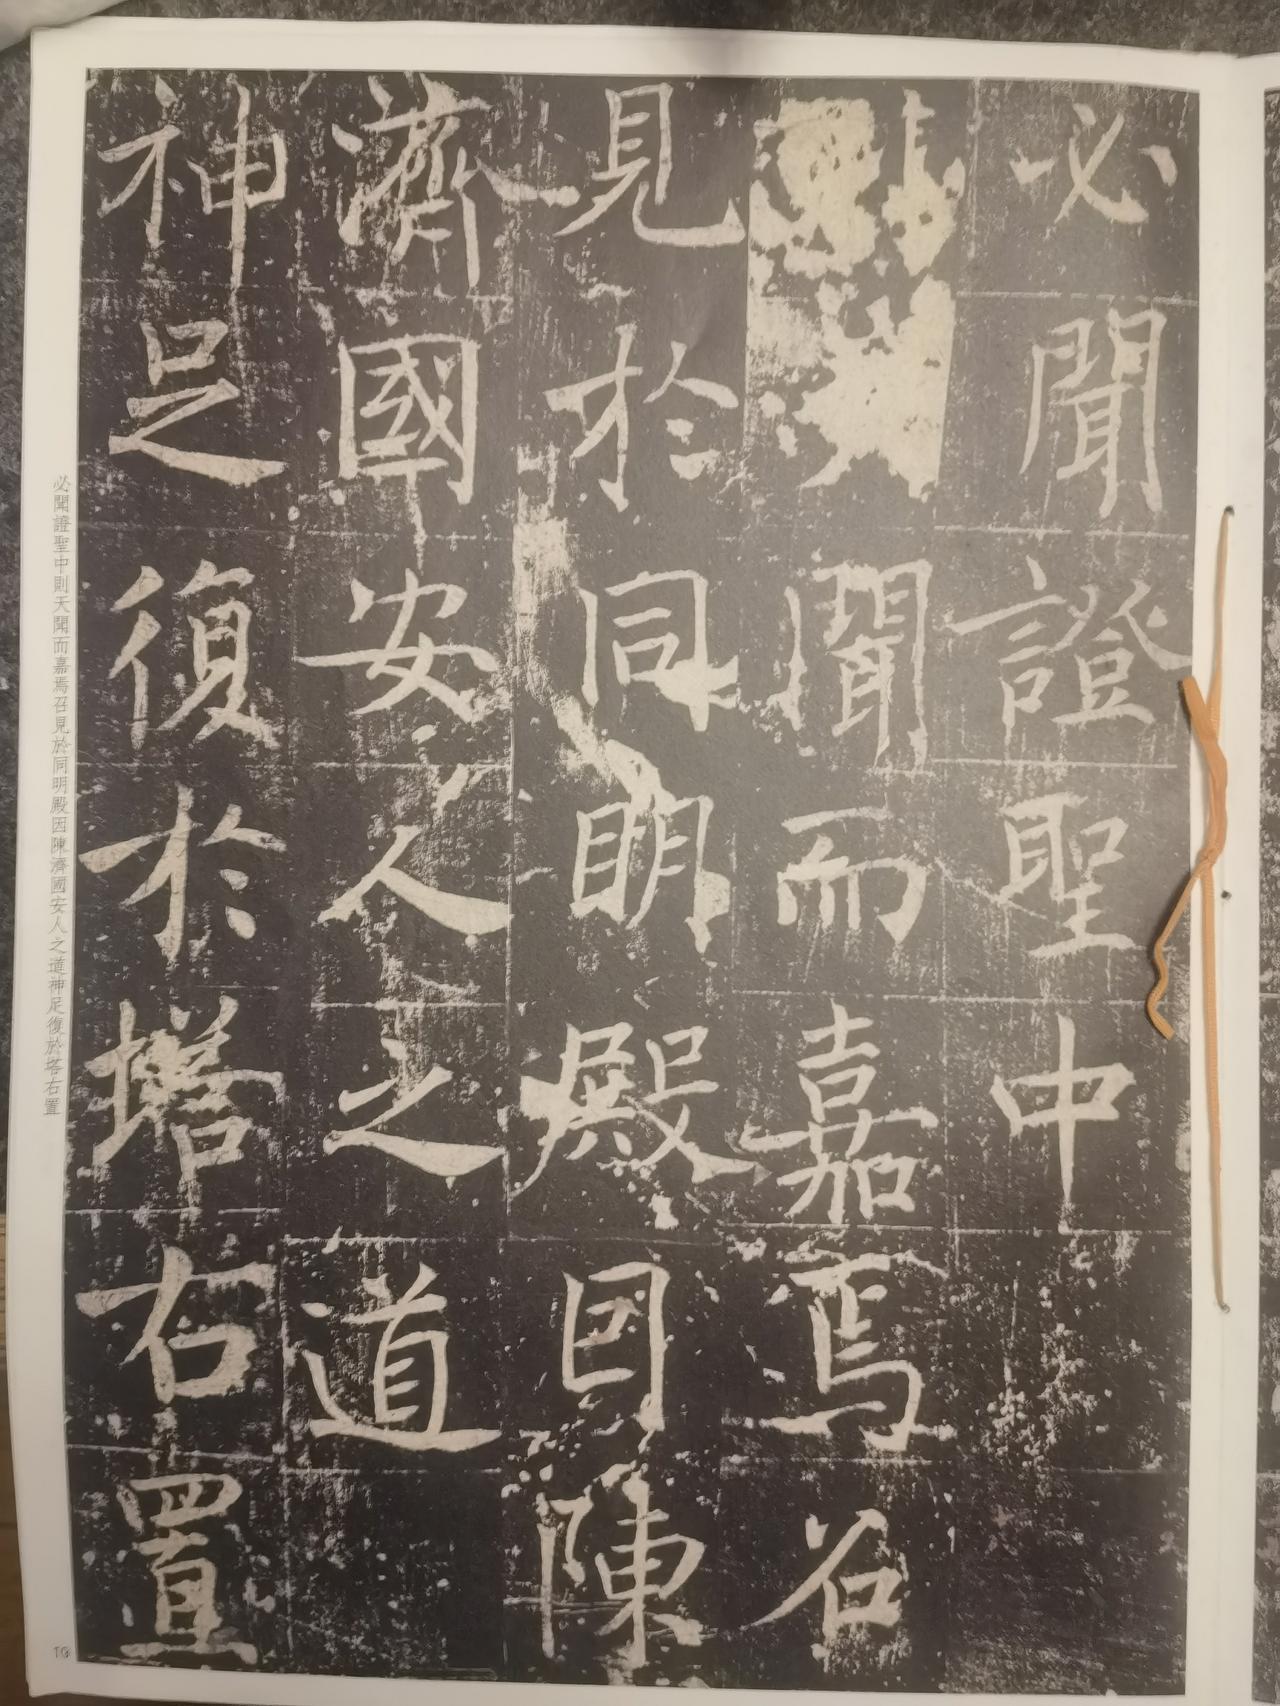 必聞證聖中
聞而嘉焉召
見於同明殿因陳
濟國安人之道
神足復於塔右置
必聞證聖中則天聞而嘉焉召見於同明殿因陳濟國安人之道神足復於塔右置
10